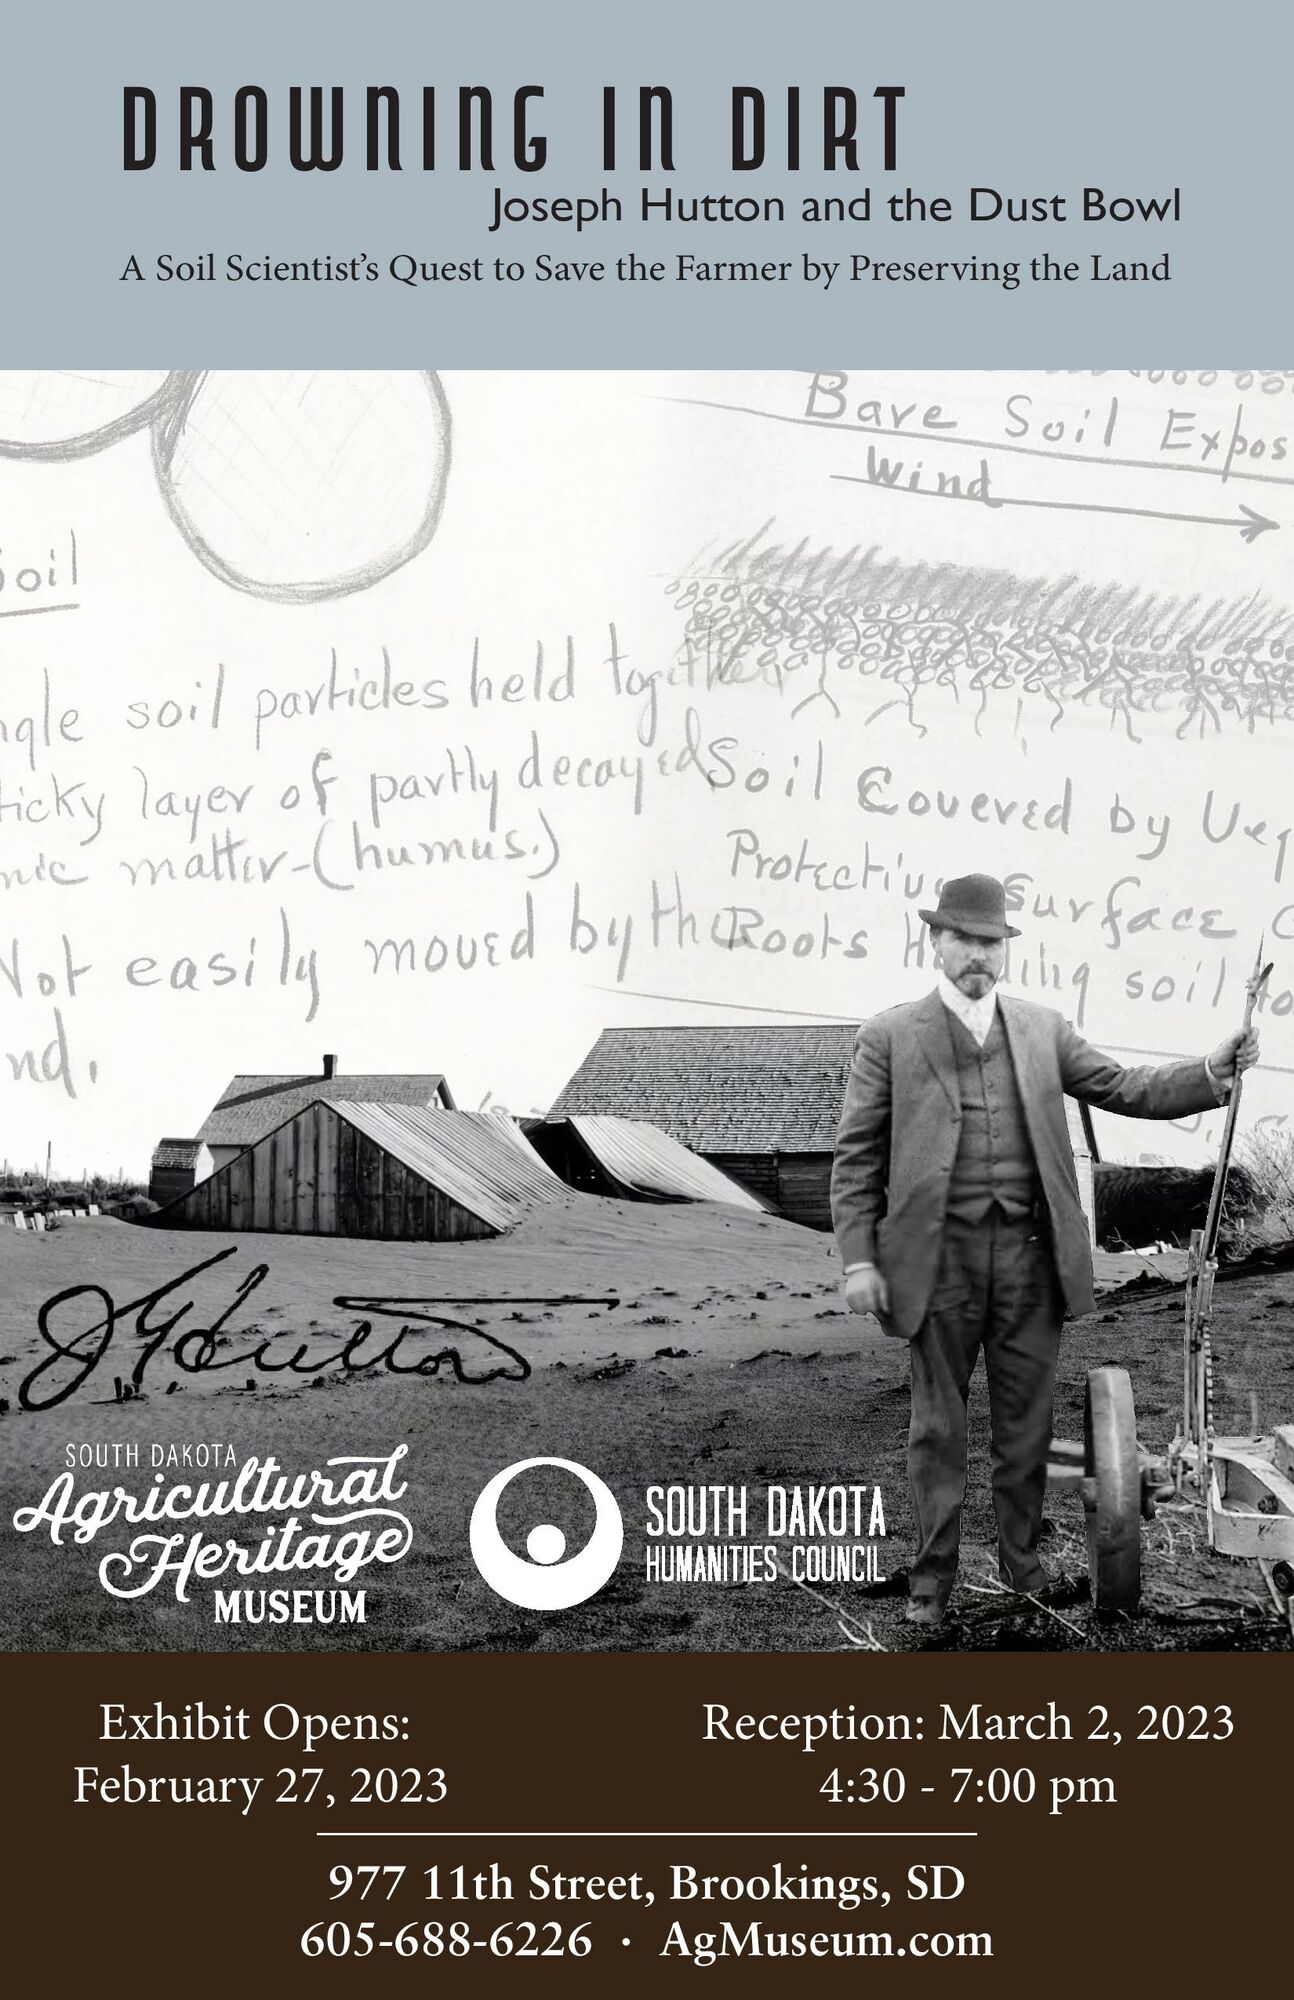 DROWNING IN DIRT
Joseph Hutton and the Dust Bowl
A Soil Scientist's Quest to Save the Farmer by Preserving the Land
Bare Soil Expos
Wind
Soil
ngle soil particles held together
ticky layer of partly decayed
nic matter-(humus.)
Not easily moved by the
nd.
Soil Covered by Veg
Protective Surface C
Roots Holding soil to
J G Hutton
SOUTH DAKOTA
Agricultural
Heritage
MUSEUM
SOUTH DAKOTA
HUMANITIES COUNCIL
Exhibit Opens:
February 27, 2023
Reception: March 2, 2023
4:30 - 7:00 pm
977 11th Street, Brookings, SD
605-688-6226 · AgMuseum.com